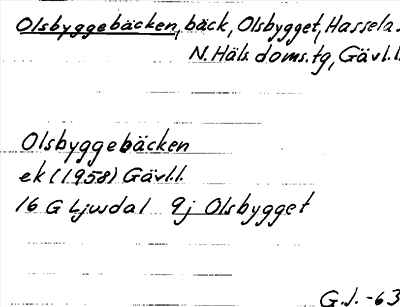 Olsbyggebäcken, bäck, Olsbygget, Hassela s
N. Häls. doms.tg, Gävl.l.
Olsbyggebäcken
ek (1958) Gävl.l.
16 G Ljusdal 9j Olsbygget
G.J. -63